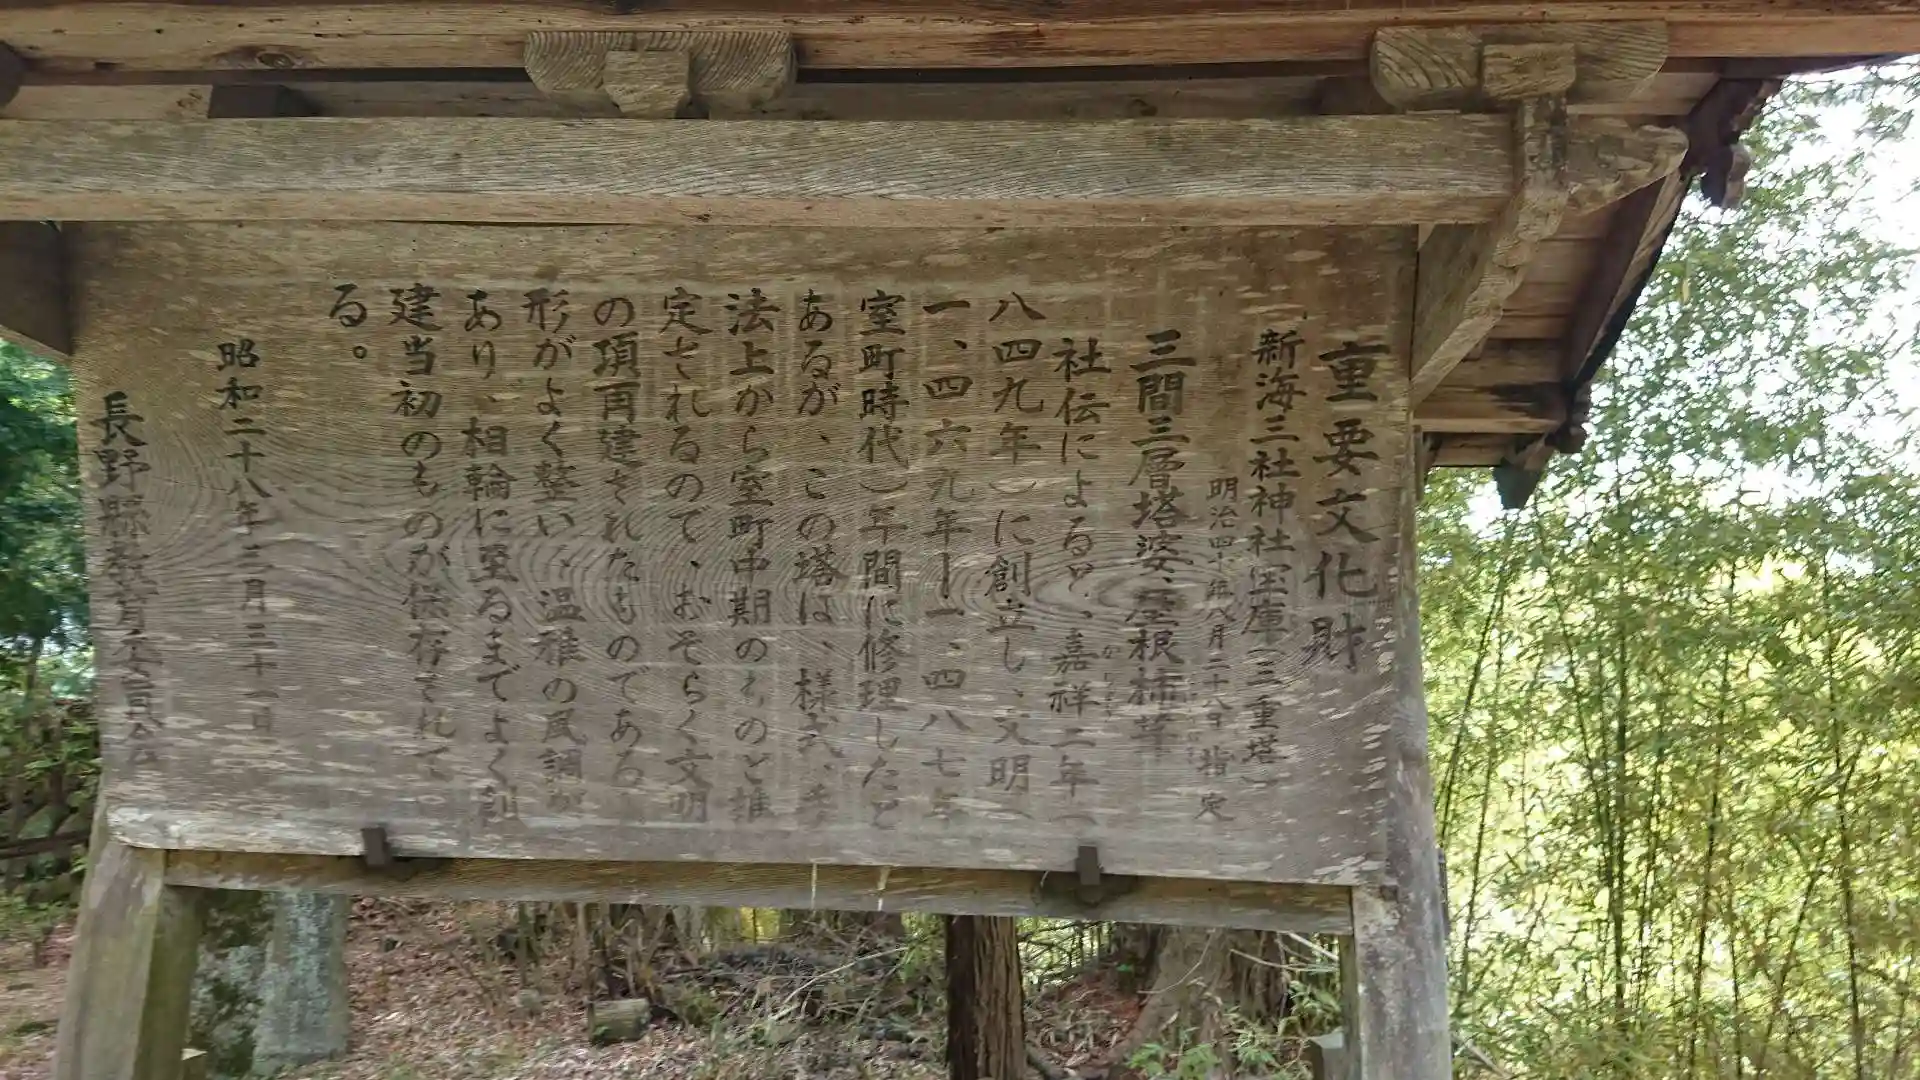 重要文化財
新海三社神社宝庫（三重塔）
明治四十年八月二十八日指定
三間三層塔婆、屋根杮葺
社伝によると、嘉祥二年（
かしょう
八四九年）に創立し、文明（
一、四六九年ー一、四八七年
室町時代）年間に修理したと
あるが、この塔は、様式、手
法上から室町中期のものと推
定されるので、おそらく文明
の頃再建されたものである。
形がよく整い、温雅の風調が
あり、相輪に至るまでよく創
建当初のものが保存されてい
る。
昭和二十八年三月三十一日
長野縣教育委員会